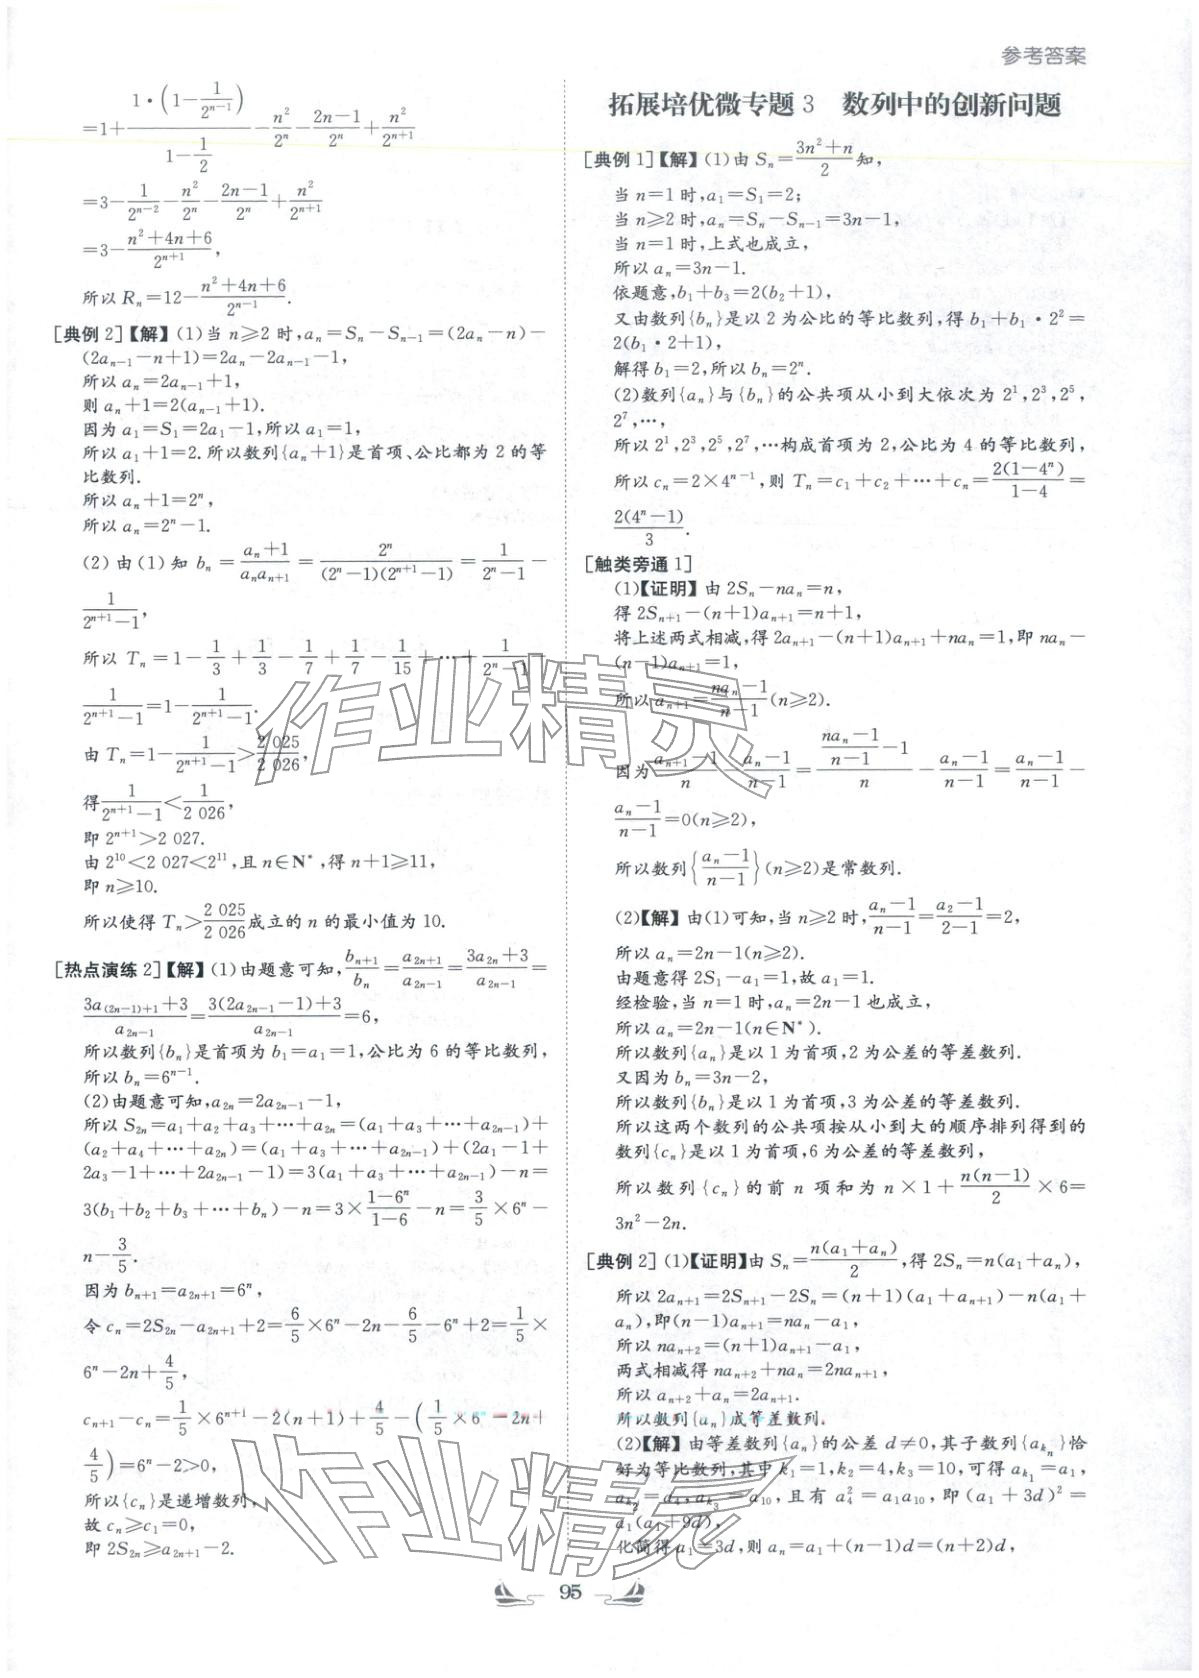 参考答案
=1+\frac{1·(1-\frac{1}{2^{n-1}})}{1-\frac{1}{2}}-\frac{n^2}{2^n}-\frac{2n-1}{2^n}+\frac{n^2}{2^{n+1}}
=3-\frac{1}{2^{n-2}}-\frac{n^2}{2^n}-\frac{2n-1}{2^n}+\frac{n^2}{2^{n+1}}
=3-\frac{n^2+4n+6}{2^{n+1}},
所以 R_n=12-\frac{n^2+4n+6}{2^{n-1}}.
[典例 2]【解】(1)当 n≥2 时,a_n=S_n-S_{n-1}=(2a_n-n)-
(2a_{n-1}-n+1)=2a_n-2a_{n-1}-1,
所以 a_n=2a_{n-1}+1,
则 a_n+1=2(a_{n-1}+1).
因为 a_1=S_1=2a_1-1,所以 a_1=1,
所以 a_1+1=2.所以数列{a_n+1}是首项、公比都为 2 的等
比数列.
所以 a_n+1=2^n,
所以 a_n=2^n-1.
(2)由(1)知 b_n=\frac{a_n+1}{a_na_{n+1}}=\frac{2^n}{(2^n-1)(2^{n+1}-1)}=\frac{1}{2^n-1}-
\frac{1}{2^{n+1}-1},
所以 T_n=1-\frac{1}{3}+\frac{1}{3}-\frac{1}{7}+\frac{1}{7}-\frac{1}{15}+…+\frac{1}{2^n-1}-
\frac{1}{2^{n+1}-1}=1-\frac{1}{2^{n+1}-1}.
由 T_n=1-\frac{1}{2^{n+1}-1}>\frac{2 025}{2 026},
得\frac{1}{2^{n+1}-1}<\frac{1}{2 026},
即 2^{n+1}>2 027.
由 2^{10}<2 027<2^{11},且 n∈N^*,得 n+1≥11,
即 n≥10.
所以使得 T_n>\frac{2 025}{2 026}成立的 n 的最小值为 10.
[热点演练 2]【解】(1)由题意可知,\frac{b_{n+1}}{b_n}=\frac{a_{2n+1}}{a_{2n-1}}=\frac{3a_{2n}+3}{a_{2n-1}}=
\frac{3a_{(2n-1)+1}+3}{a_{2n-1}}=\frac{3(2a_{2n-1}-1)+3}{a_{2n-1}}=6,
所以数列{b_n}是首项为 b_1=a_1=1,公比为 6 的等比数列,
所以 b_n=6^{n-1}.
(2)由题意可知,a_{2n}=2a_{2n-1}-1,
所以 S_{2n}=a_1+a_2+a_3+…+a_{2n}=(a_1+a_3+…+a_{2n-1})+
(a_2+a_4+…+a_{2n})=(a_1+a_3+…+a_{2n-1})+(2a_1-1+
2a_3-1+…+2a_{2n-1}-1)=3(a_1+a_3+…+a_{2n-1})-n=
3(b_1+b_2+b_3+…+b_n)-n=3×\frac{1-6^n}{1-6}-n=\frac{3}{5}×6^n-
n-\frac{3}{5}.
因为 b_{n+1}=a_{2n+1}=6^n,
令 c_n=2S_{2n}-a_{2n+1}+2=\frac{6}{5}×6^n-2n-\frac{6}{5}-6^n+2=\frac{1}{5}×
6^n-2n+\frac{4}{5},
c_{n+1}-c_n=\frac{1}{5}×6^{n+1}-2(n+1)+\frac{4}{5}-(\frac{1}{5}×6^n-2n+
\frac{4}{5})=6^n-2>0,
所以{c_n}是递增数列,
故 c_n≥c_1=0,
即 2S_{2n}≥a_{2n+1}-2.
拓展培优微专题 3 数列中的创新问题
[典例 1]【解】(1)由 S_n=\frac{3n^2+n}{2}知,
当 n=1 时,a_1=S_1=2;
当 n≥2 时,a_n=S_n-S_{n-1}=3n-1,
当 n=1 时,上式也成立,
所以 a_n=3n-1.
依题意,b_1+b_3=2(b_2+1),
又由数列{b_n}是以 2 为公比的等比数列,得 b_1+b_1·2^2=
2(b_1·2+1),
解得 b_1=2,所以 b_n=2^n.
(2)数列{a_n}与{b_n}的公共项从小到大依次为 2^1,2^3,2^5,
2^7,…,
所以 2^1,2^3,2^5,2^7,…构成首项为 2,公比为 4 的等比数列,
所以 c_n=2×4^{n-1},则 T_n=c_1+c_2+…+c_n=\frac{2(1-4^n)}{1-4}=
\frac{2(4^n-1)}{3}.
[触类旁通 1]
(1)【证明】由 2S_n-na_n=n,
得 2S_{n+1}-(n+1)a_{n+1}=n+1,
将上述两式相减,得 2a_{n+1}-(n+1)a_{n+1}+na_n=1,即 na_n-
(n-1)a_{n+1}=1,
所以 a_{n+1}=\frac{na_n-1}{n-1}(n≥2).
因为\frac{a_{n+1}-1}{n}-\frac{a_n-1}{n-1}=\frac{\frac{na_n-1}{n-1}-1}{n}-\frac{a_n-1}{n-1}=\frac{a_n-1}{n-1}-
\frac{a_n-1}{n-1}=0(n≥2),
所以数列{\frac{a_n-1}{n-1}}(n≥2)是常数列.
(2)【解】由(1)可知,当 n≥2 时,\frac{a_n-1}{n-1}=\frac{a_2-1}{2-1}=2,
所以 a_n=2n-1(n≥2).
由题意得 2S_1-a_1=1,故 a_1=1.
经检验,当 n=1 时,a_n=2n-1 也成立,
所以 a_n=2n-1(n∈N^*).
所以数列{a_n}是以 1 为首项,2 为公差的等差数列.
又因为 b_n=3n-2,
所以数列{b_n}是以 1 为首项,3 为公差的等差数列.
所以这两个数列的公共项按从小到大的顺序排列得到的
数列{c_n}是以 1 为首项,6 为公差的等差数列,
所以数列{c_n}的前 n 项和为 n×1+\frac{n(n-1)}{2}×6=
3n^2-2n.
[典例 2](1)【证明】由 S_n=\frac{n(a_1+a_n)}{2},得 2S_n=n(a_1+a_n),
所以 2a_{n+1}=2S_{n+1}-2S_n=(n+1)(a_1+a_{n+1})-n(a_1+
a_n),即(n-1)a_{n+1}=na_n-a_1,
所以 na_{n+2}=(n+1)a_{n+1}-a_1,
两式相减得 na_{n+2}+na_n=2na_{n+1},
所以 a_{n+2}+a_n=2a_{n+1}.
所以数列{a_n}成等差数列.
(2)【解】由等差数列{a_n}的公差 d≠0,其子数列{a_{k_n}}恰
好为等比数列,其中 k_1=1,k_2=4,k_3=10,可得 a_{k_1}=a_1,
a_{k_2}=a_4,a_{k_3}=a_{10},且有 a_4^2=a_1a_{10},即(a_1+3d)^2=
a_1(a_1+9d),
化简得 a_1=3d,则 a_n=a_1+(n-1)d=(n+2)d,
95
作业精灵
作业精灵